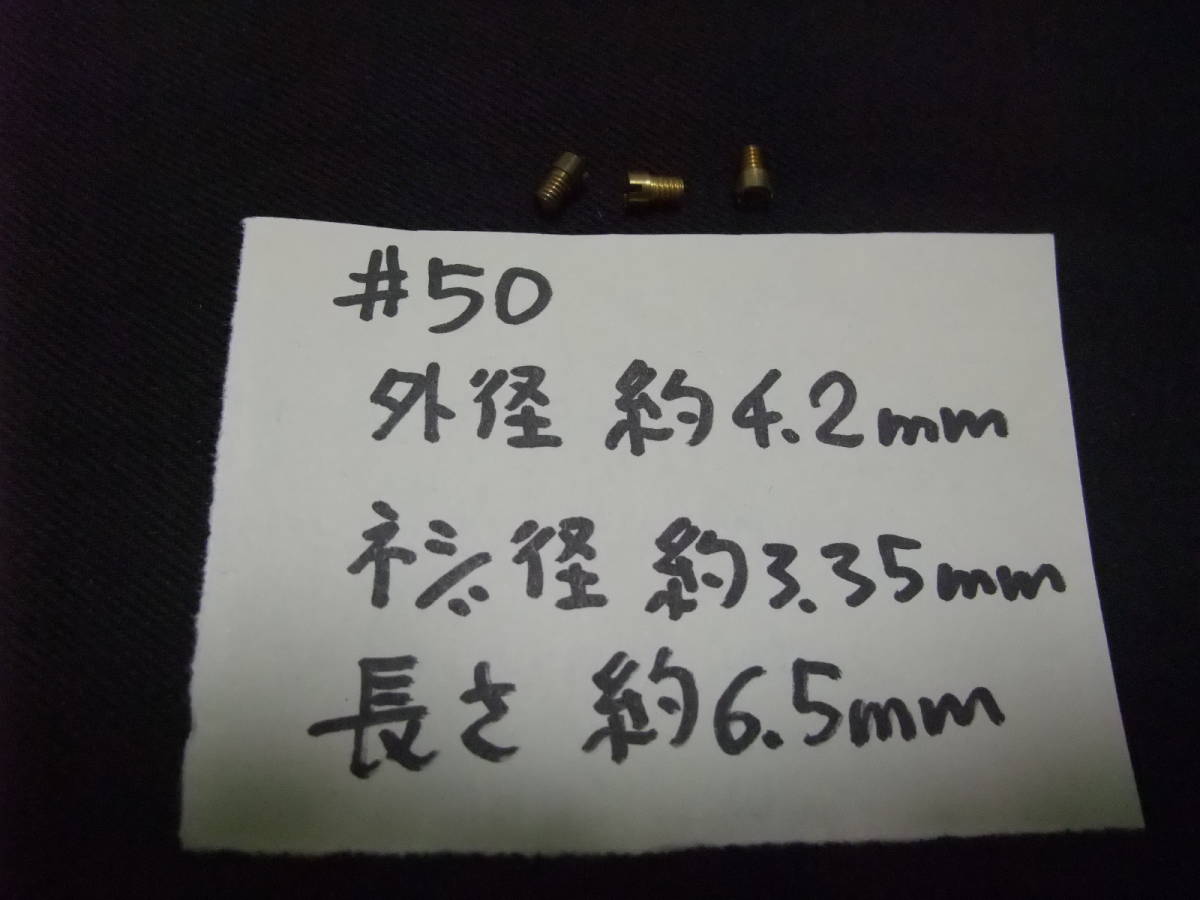 #50
外径 約4.2mm
ネジ径 約3.35mm
長さ 約6.5mm